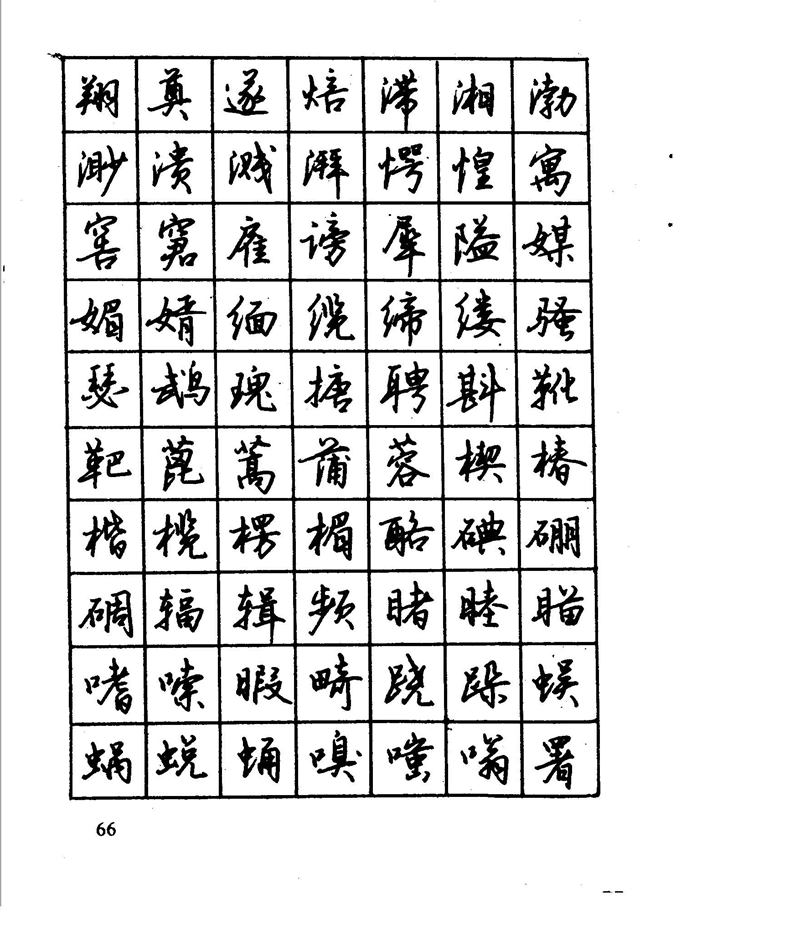 翔奠遂焙滞湘渤
渺溃溅湃愕惶寓
窖窘雇谤犀隘媒
媚婿缅缆缔缕骚
瑟鹉瑰搪聘斟靴
靶蓖蒿蒲蓉楔椿
楷榄楞楣酪碘硼
碉辐辑频睹睦瞄
嗜嗦暇畸跷跺蜈
蜗蜕蛹嗅嗤嗡署
66